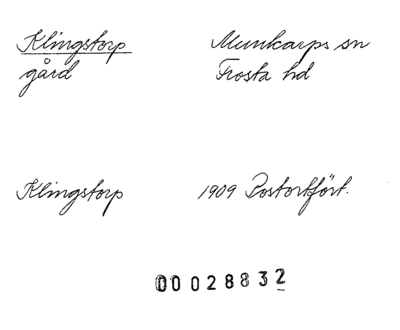 Klingstorp Munkarps sn
gård Frosta hd
Klingstorp 1909 Postortfört.
00028832